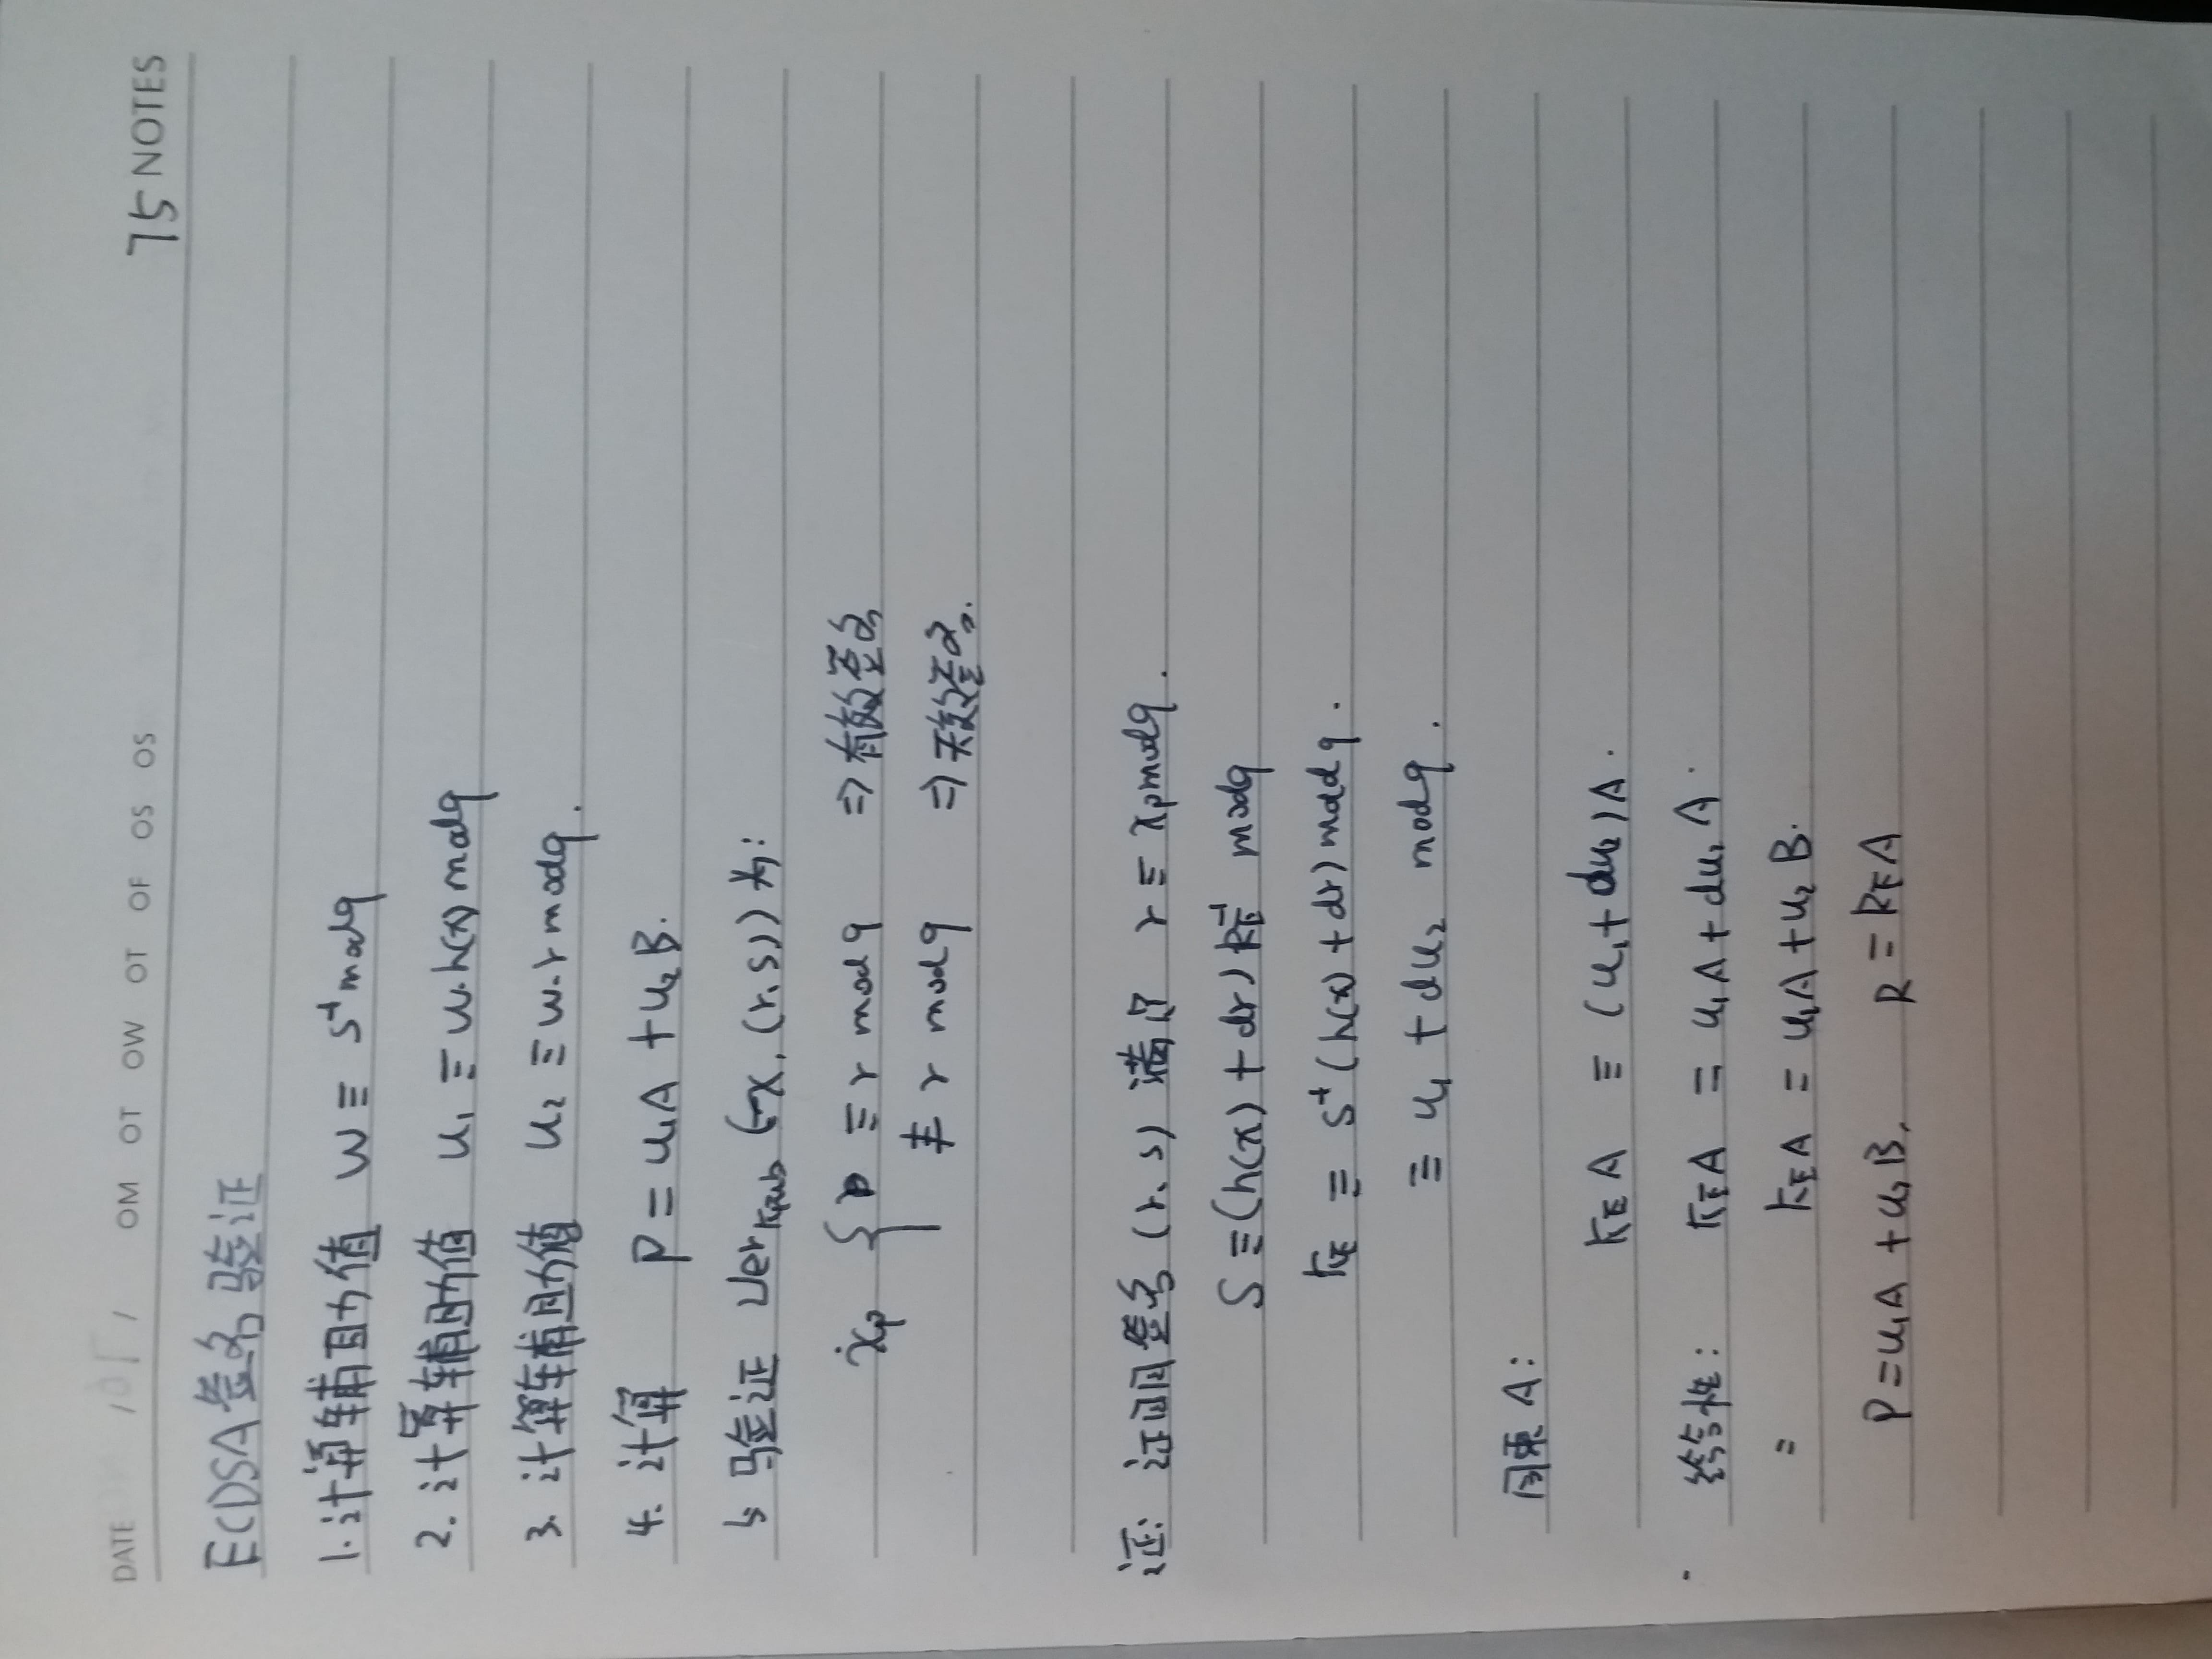 DATE / / OM OT OW OT OF OS OS 75 NOTES
ECDSA签名验证
1. 计算辅助值 W ≡ s⁻¹ mod q
2. 计算辅助值 u₁ ≡ w·h(x) mod q
3. 计算辅助值 u₂ ≡ w·r mod q.
4. 计算 P = u₁A + u₂B.
5 验证 Ver_kpub (x, (r, s)) 为:
xₚ { ≡ r mod q ⇒ 有效签名
≢ r mod q ⇒ 无效签名.
证: 证明签名 (r, s) 满足 r ≡ xₚ mod q.
S ≡ (h(x) + dr) k_E⁻¹ mod q
k_E ≡ s⁻¹ (h(x) + dr) mod q.
≡ u₁ + du₂ mod q.
同乘 A:
k_E A ≡ (u₁ + du₂) A.
结合性: k_E A = u₁A + du₂ A.
= k_E A = u₁A + u₂ B.
P = u₁A + u₂ B, R = k_E A